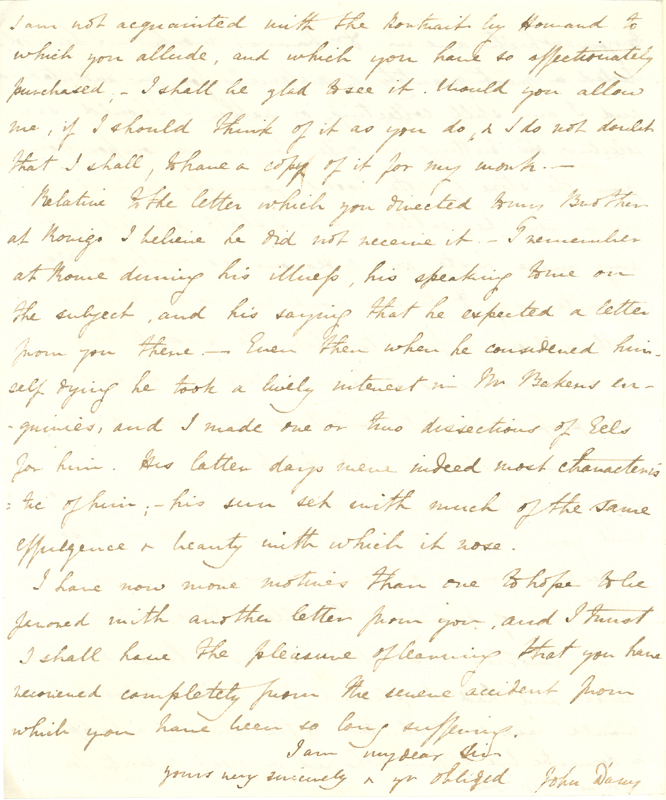 I am not acquainted with the Portrait by Howard to
which you allude, and which you have so affectionately
purchased, - I shall be glad to see it. Would you allow
me, if I should think of it as you do, & I do not doubt
that I shall, to have a copy of it for my work. —
Relative to the letter which you directed to my Brother
at Rovigo I believe he did not receive it. - I remember
at Rome during his illness, his speaking to me on
the subject, and his saying that he expected a letter
from you there — Even then when he considered him-
self dying he took a lively interest in Mr Bakers en-
-quiries, and I made one or two dissections of Eels
for him. His latter days were indeed most characteris
:tic of him, - his sun set with much of the same
effulgence & beauty with which it rose.
I have now more motives than one to hope to be
favored with another letter from you, and I trust
I shall have the pleasure of learning that you have
recovered completely from the severe accident from
which you have been so long suffering.
I am my dear Sir
yours very sincerely & yr obliged John Davy